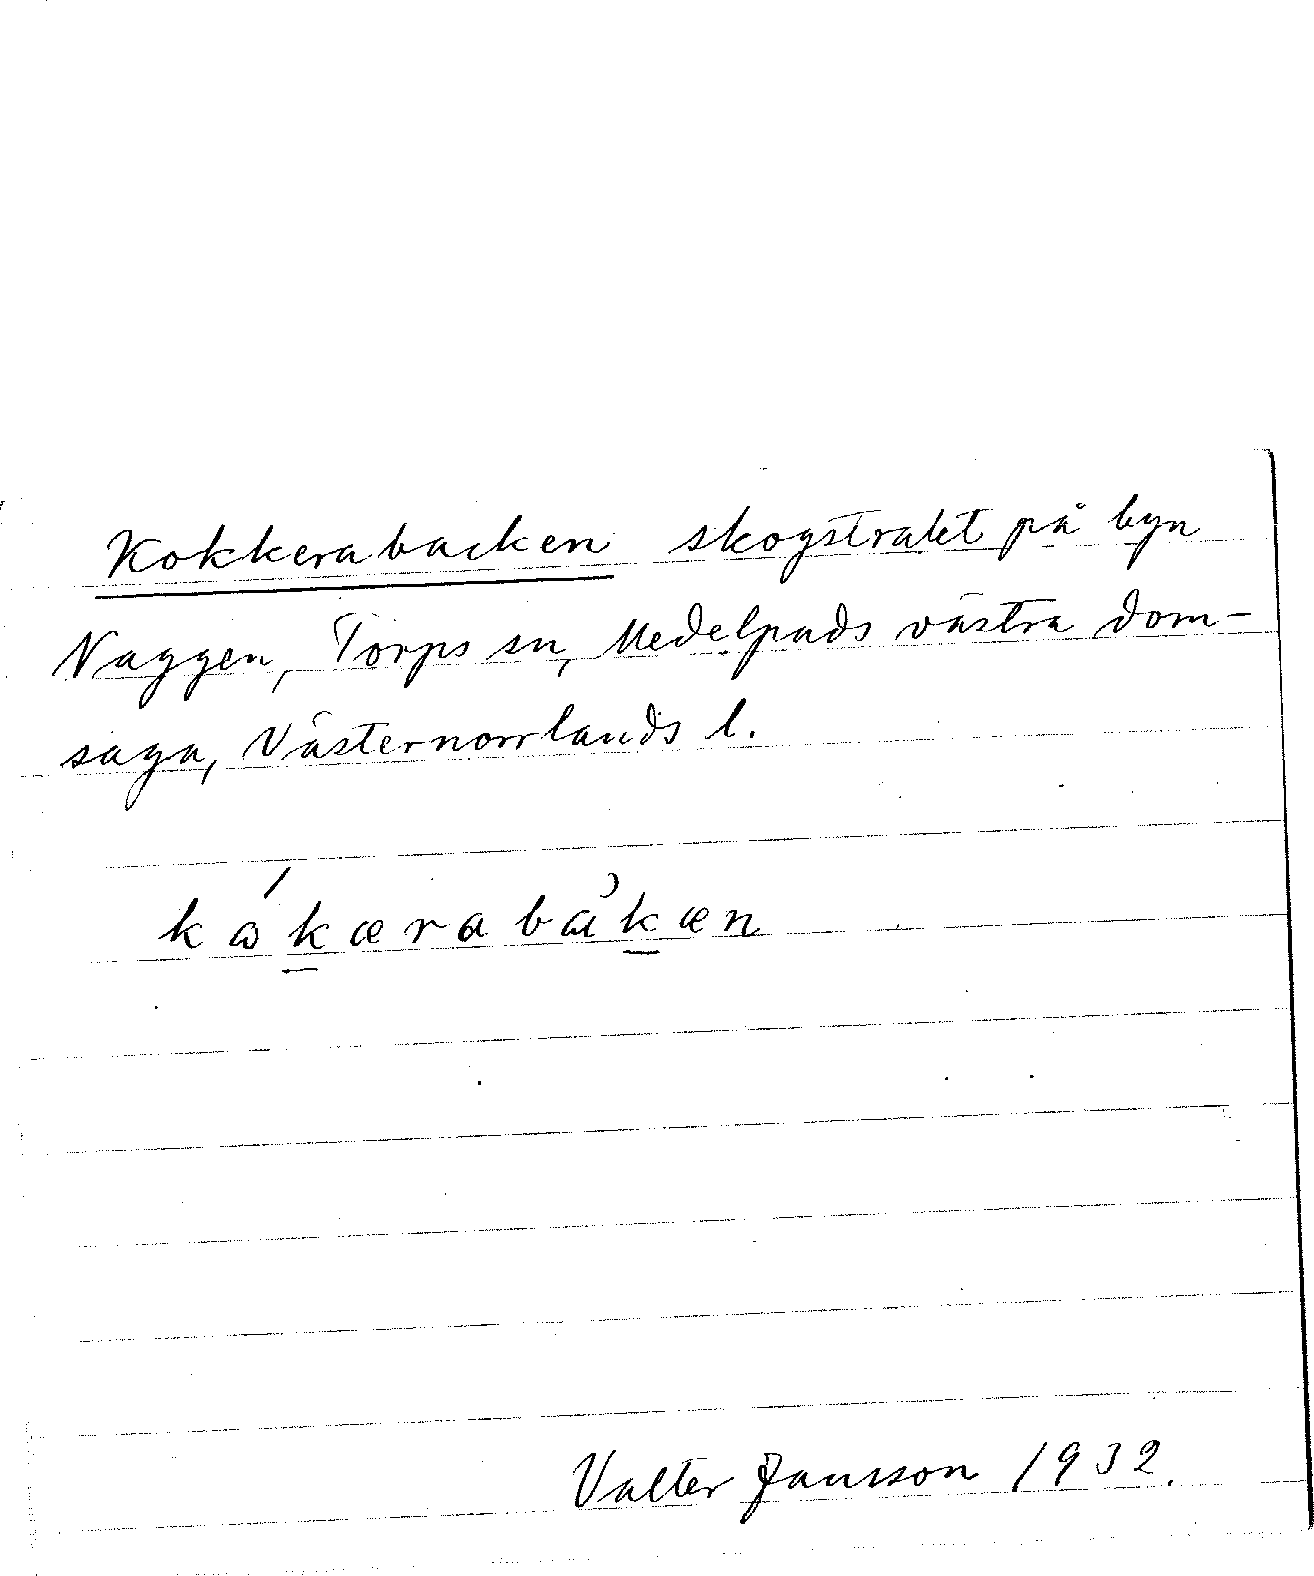 Kokkerabacken skogstrakt på byn
Naggen, Torps sn, Medelpads västra dom-
saga, Västernorrlands l.
kåkærabakæn
Valter Jansson 1932.